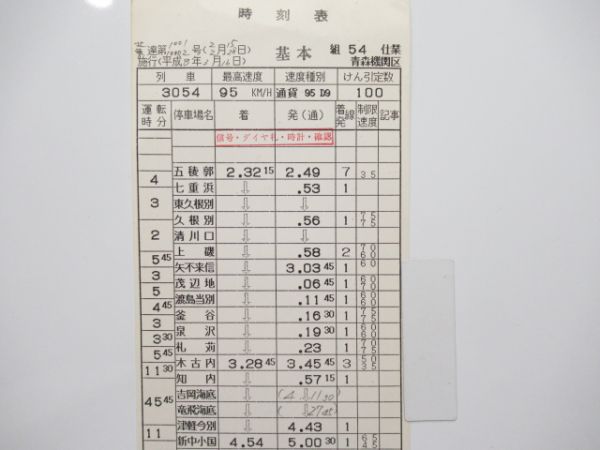 時刻表
達第 1001 1002 号(2月15日)
施行(平成 年 月16日)
基本
組 54 仕業
青森機関区
列車 最高速度 速度種別 けん引定数
3054 95 KM/H 通貨 95 D9 100
運転時分 停車場名 着 発(通) 着発線 制限速度 記事
信号・ダイヤ札・時計・確認
五稜郭 2.32 15 2.49 7 35
4
七重浜 ⇩ .53 1
3
東久根別 ⇩ ⇩
久根別 ⇩ .56 1 75 75
2
清川口 ⇩ ⇩
上磯 ⇩ .58 2 70 60
5 45
矢不来信 ⇩ 3.03 45 1 60
3
茂辺地 ⇩ .06 45 1 60 70
5
渡島当別 ⇩ .11 45 1 60 60
4 45
釜谷 ⇩ .16 30 1 75 75
3
泉沢 ⇩ .19 30 1 60 60
3 30
札苅 ⇩ .23 1 70 75
5 45
木古内 3.28 45 3.45 45 3 50 35
11 30
知内 ⇩ .57 15 1
吉岡海底 ⇩ (4 11 30)
45 45
竜飛海底 ⇩ ( 27 45)
津軽今別 ⇩ 4.43 1
11
新中小国 4.54 5.00 30 1 65 45